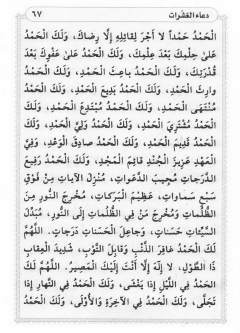 دعاء العشرات
٦٧
الْحَمْدُ حَمْداً لا أَجْرَ لِقائِلِهِ إِلَّا رِضاكَ، وَلَكَ الْحَمْدُ
عَلىٰ حِلْمِكَ بَعْدَ عِلْمِكَ، وَلَكَ الْحَمْدُ عَلىٰ عَفْوِكَ بَعْدَ
قُدْرَتِكَ، وَلَكَ الْحَمْدُ باعِثَ الْحَمْدِ، وَلَكَ الْحَمْدُ
وارِثَ الْحَمْدِ، وَلَكَ الْحَمْدُ بَدِيعَ الْحَمْدِ، وَلَكَ الْحَمْدُ
مُنْتَهَى الْحَمْدِ، وَلَكَ الْحَمْدُ مُبْتَدِعَ الْحَمْدِ، وَلَكَ
الْحَمْدُ مُشْتَرِيَ الْحَمْدِ، وَلَكَ الْحَمْدُ وَلِيَّ الْحَمْدِ، وَلَكَ
الْحَمْدُ قَدِيمَ الْحَمْدِ، وَلَكَ الْحَمْدُ صادِقَ الْوَعْدِ، وَفِيَّ
الْعَهْدِ عَزِيزَ الْجُنْدِ قائِمَ الْمَجْدِ، وَلَكَ الْحَمْدُ رَفِيعَ
الدَّرَجاتِ مُجِيبَ الدَّعَواتِ، مُنْزِلَ الْآياتِ مِنْ فَوْقِ
سَبْعِ سَماواتٍ، عَظِيمَ الْبَرَكاتِ، مُخْرِجَ النُّورِ مِنَ
الظُّلُماتِ وَمُخْرِجَ مَنْ فِي الظُّلُماتِ إِلَى النُّورِ، مُبَدِّلَ
السَّيِّئاتِ حَسَناتٍ، وَجاعِلَ الْحَسَناتِ دَرَجاتٍ. اللّٰهُمَّ
لَكَ الْحَمْدُ غافِرَ الذَّنْبِ وَقابِلَ التَّوْبِ، شَدِيدَ الْعِقابِ
ذَا الطَّوْلِ، لا إِلٰهَ إِلَّا أَنْتَ إِلَيْكَ الْمَصِيرُ. اللّٰهُمَّ لَكَ
الْحَمْدُ فِي اللَّيْلِ إِذا يَغْشىٰ، وَلَكَ الْحَمْدُ فِي النَّهارِ إِذا
تَجَلّىٰ، وَلَكَ الْحَمْدُ فِي الْآخِرَةِ وَالْأُولىٰ، وَلَكَ الْحَمْدُ